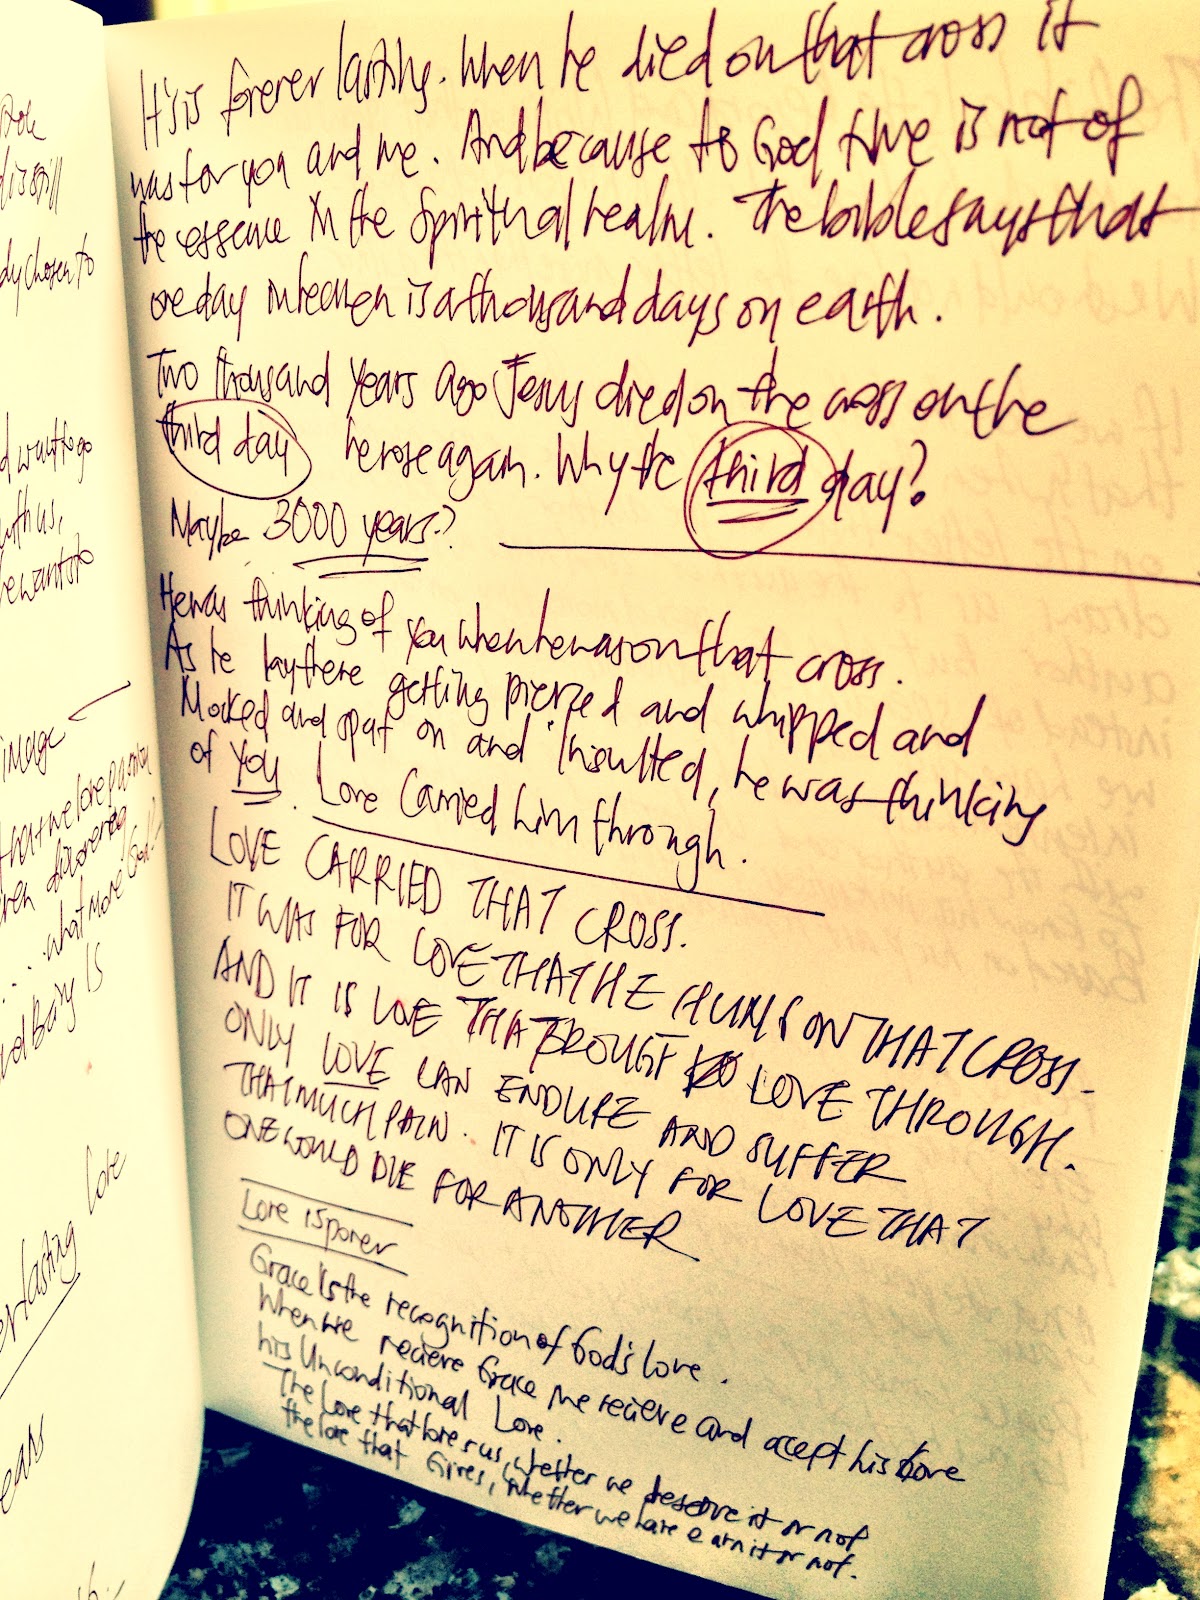 It's is forever lasting. When he died on that cross it
was for you and me. And because to God time is not of
the essence in the Spiritual realm. The bible says that
one day in heaven is a thousand days on earth.
Two thousand years ago Jesus died on the cross on the
third day he rose again. Why the third day?
Maybe 3000 years?
He was thinking of you when he was on that cross.
As he lay there getting pierzed and whipped and
Mocked and spat on and insulted, he was thinking
of you. Love Carried him through.
LOVE CARRIED THAT CROSS.
IT WAS FOR LOVE THAT HE HUNG ON THAT CROSS.
AND IT IS LOVE THAT BROUGHT LOVE THROUGH.
ONLY LOVE CAN ENDURE AND SUFFER
THAT MUCH PAIN. IT IS ONLY FOR LOVE THAT
ONE WOULD DIE FOR ANOTHER
Love is power
Grace is the recognition of God's love.
When we recieve Grace we recieve and accept his love
his Unconditional Love.
The Love that loves us, whether we deserve it or not
the love that Gives, whether we have earn it or not.
still
dy chosen to
d want to go
with us,
he wants to
image
that we love
discovered
what more God
Being is
love
erlasting
ears